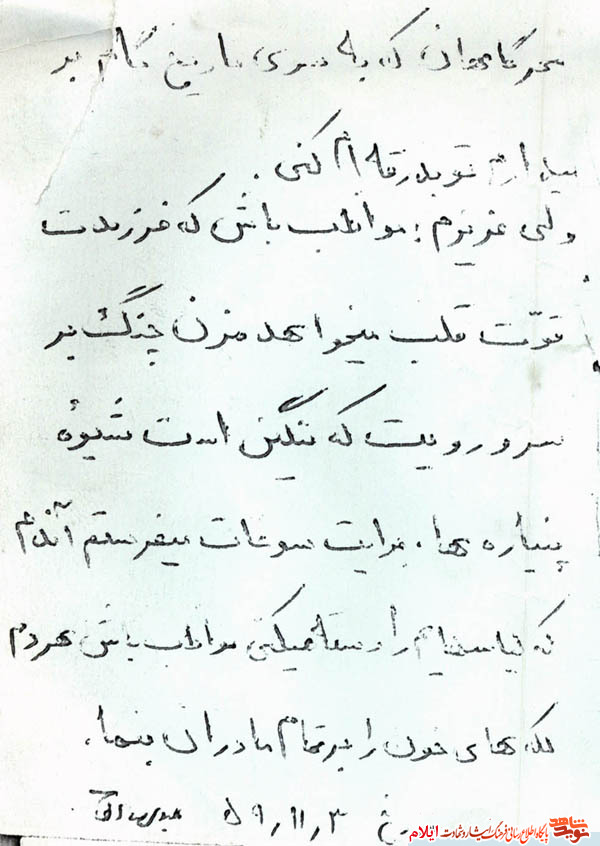 سحرگاهان که به سوی تاریخ گام بر
میدارم تو بدرقه ام کنی.
ولی عزیزم: مواظب باش که فرزندت
قوّت قلب میخواهد مزن چنگ بر
سر و رویت که ننگین است شیوهٔ
پتیاره ها. برایت سوغات میفرستم آندم
که لباسهایم را وصله میکنی مواظب باش هر دم
لکه های خون را بر تمام مادران بنما.
۵۹/۱۱/۳
نوید شاهد پایگاه اطلاع رسانی فرهنگ ایثار و شهادت ایلام